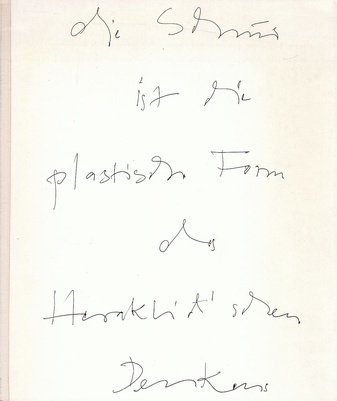 die
ist die
plastische Form
des
Heraklit'schen
Denkens